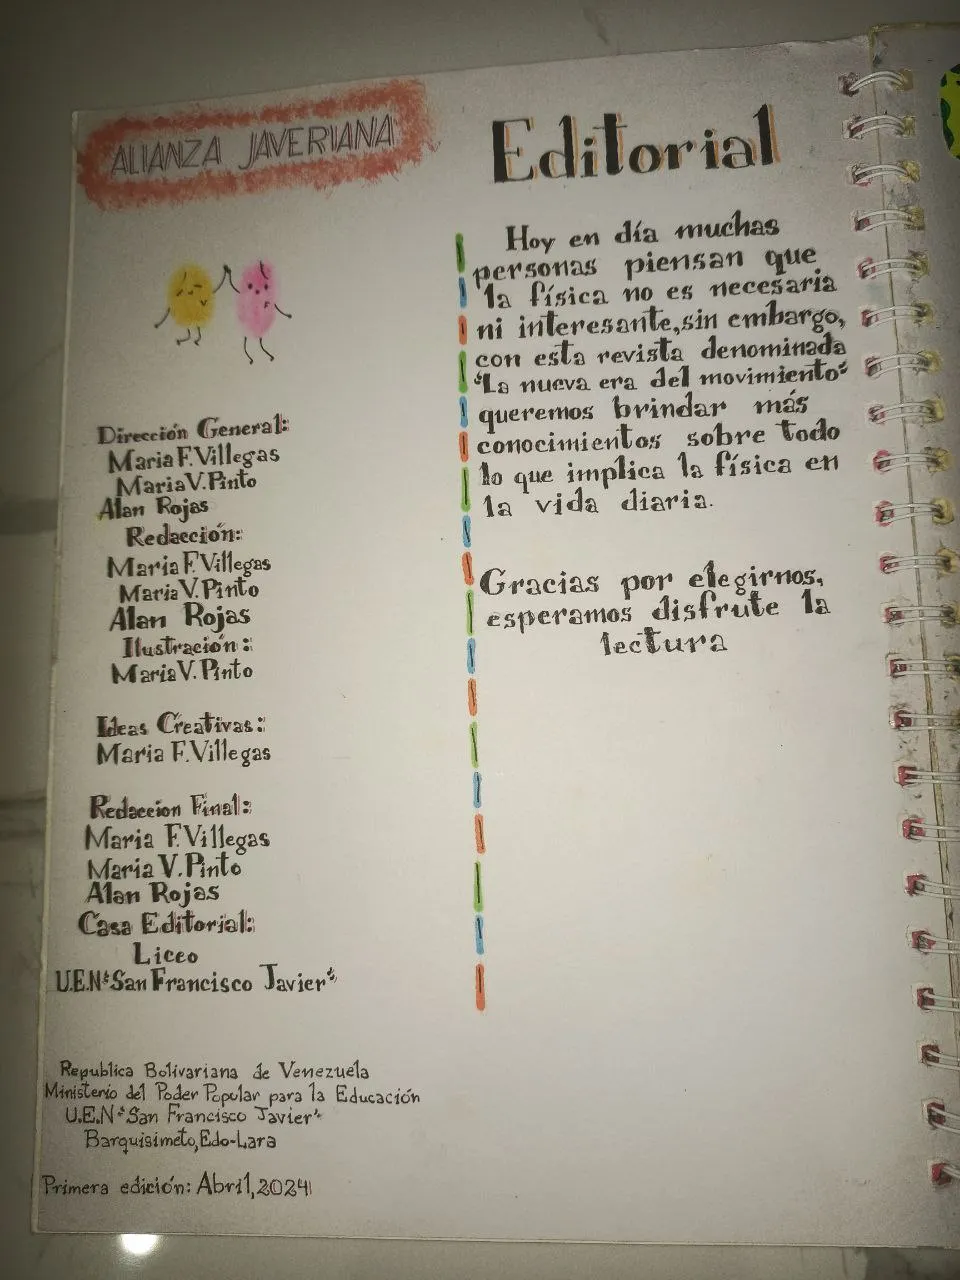 ALIANZA JAVERIANA
Dirección General:
Maria F. Villegas
Maria V. Pinto
Alan Rojas
Redacción:
Maria F. Villegas
Maria V. Pinto
Alan Rojas
Ilustración:
Maria V. Pinto
Ideas Creativas:
Maria F. Villegas
Redaccion Final:
Maria F. Villegas
Maria V. Pinto
Alan Rojas
Casa Editorial:
Liceo
U.E.N "San Francisco Javier"
Republica Bolivariana de Venezuela
Ministerio del Poder Popular para la Educación
U.E.N "San Francisco Javier"
Barquisimeto, Edo-Lara
Primera edición: Abril, 2024
Editorial
Hoy en día muchas
personas piensan que
la física no es necesaria
ni interesante, sin embargo,
con esta revista denominada
"La nueva era del movimiento"
queremos brindar más
conocimientos sobre todo
lo que implica la física en
la vida diaria.
Gracias por elegirnos,
esperamos disfrute la
lectura